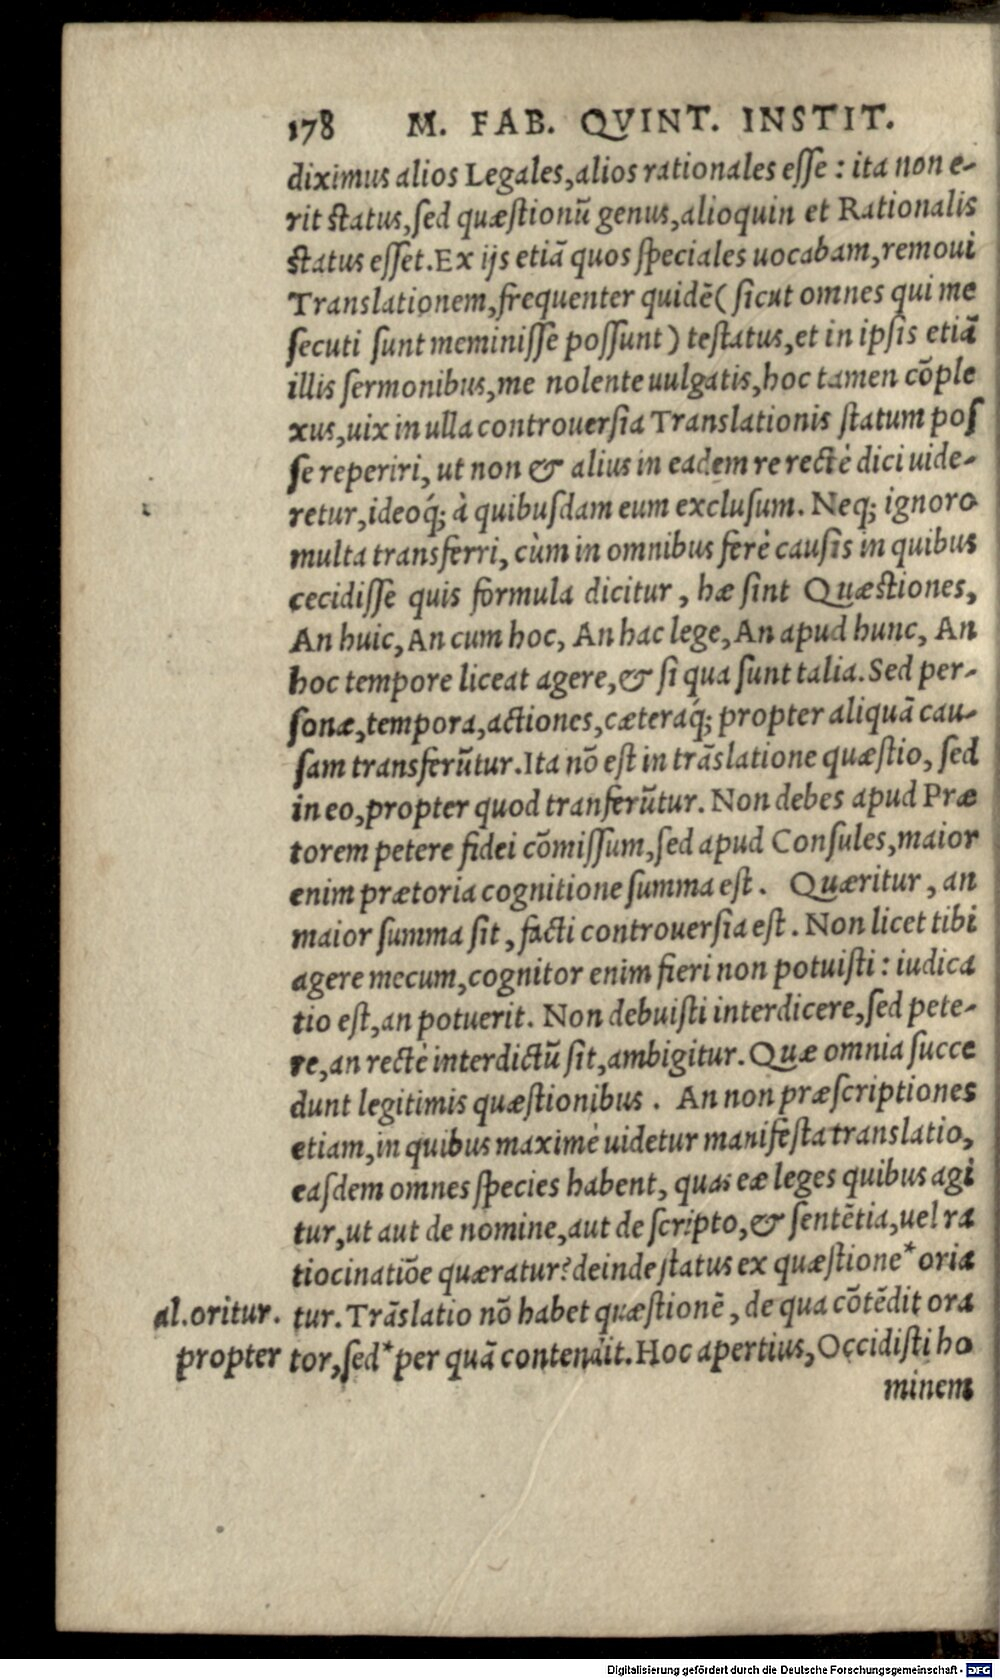 178 M. FAB. QVINT. INSTIT.
diximus alios Legales, alios rationales esse : ita non e-
rit status, sed quæstionū genus, alioquin et Rationalis
status esset. Ex ijs etiā quos speciales uocabam, remoui
Translationem, frequenter quidē ( sicut omnes qui me
secuti sunt meminisse possunt ) testatus, et in ipsis etiā
illis sermonibus, me nolente uulgatis, hoc tamen cōple
xus, uix in ulla controuersia Translationis statum pos
se reperiri, ut non & alius in eadem re rectè dici uide-
retur, ideoq́; à quibusdam eum exclusum. Neq; ignoro
multa transferri, cùm in omnibus ferè causis in quibus
cecidisse quis formula dicitur, hæ sint Quæstiones,
An huic, An cum hoc, An hac lege, An apud hunc, An
hoc tempore liceat agere, & si qua sunt talia. Sed per-
sonæ, tempora, actiones, cæteraq́; propter aliquā cau-
sam transferūtur. Ita nō est in trāslatione quæstio, sed
in eo, propter quod tranferūtur. Non debes apud Præ
torem petere fidei cōmissum, sed apud Consules, maior
enim prætoria cognitione summa est. Quæritur, an
maior summa sit, facti controuersia est. Non licet tibi
agere mecum, cognitor enim fieri non potuisti : iudica
tio est, an potuerit. Non debuisti interdicere, sed pete-
re, an rectè interdictū sit, ambigitur. Quæ omnia succe
dunt legitimis quæstionibus. An non præscriptiones
etiam, in quibus maximè uidetur manifesta translatio,
easdem omnes species habent, quas eæ leges quibus agi
tur, ut aut de nomine, aut de scripto, & sentētia, uel ra
tiocinatiōe quæratur? deinde status ex quæstione* oria
al. oritur. tur. Trāslatio nō habet quæstionē, de qua cōtēdit ora
propter tor, sed* per quā contendit. Hoc apertius, Occidisti ho
minem
Digitalisierung gefördert durch die Deutsche Forschungsgemeinschaft - DFG